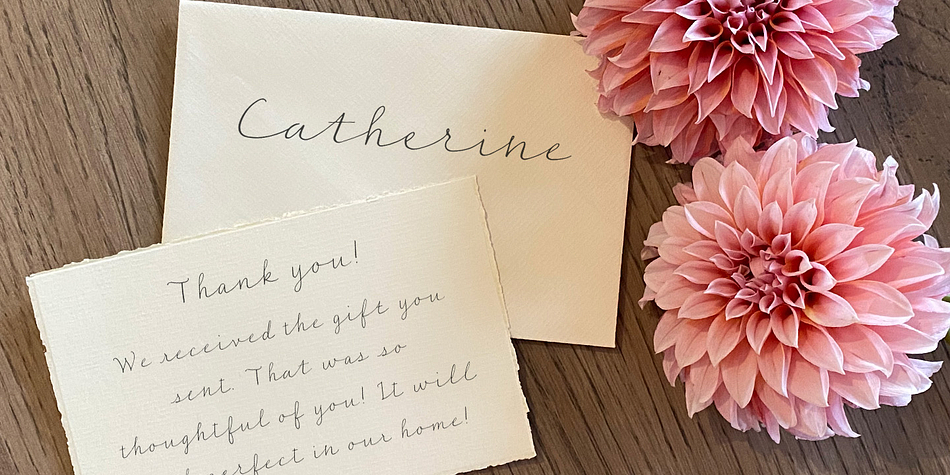 Catherine
Thank you!
We received the gift you
sent. That was so
thoughtful of you! It will
perfect in our home!